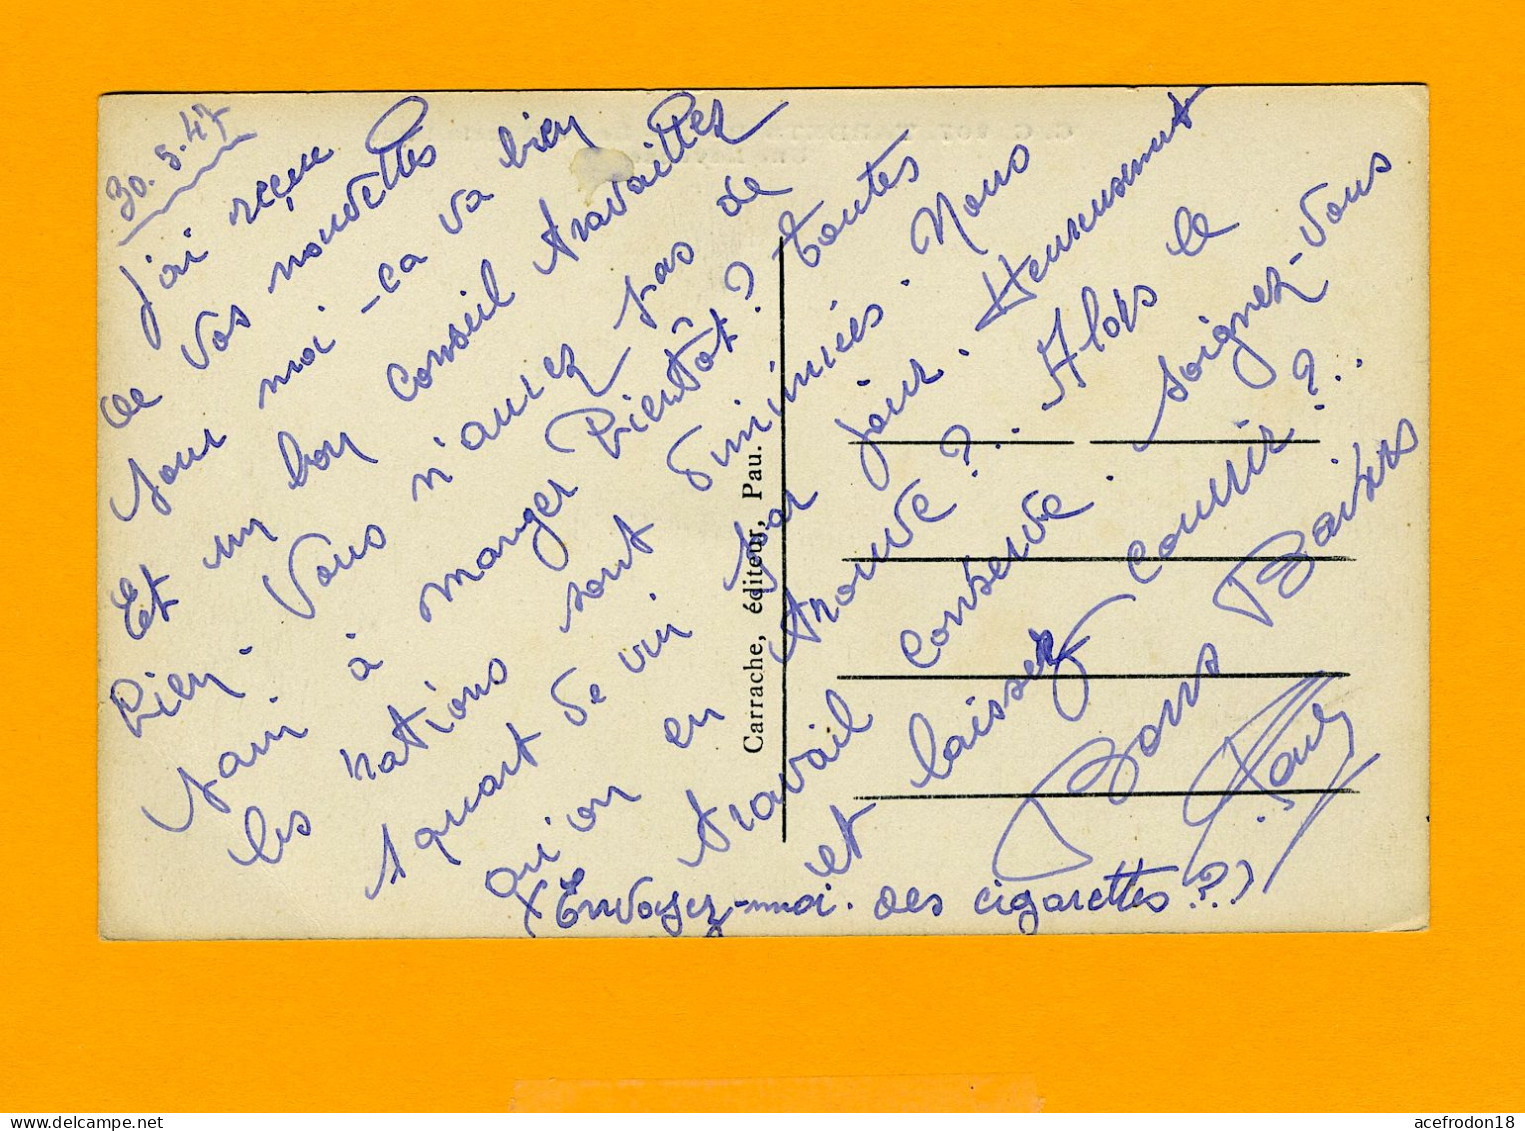 30.9.47
J'ai reçue
de vos nouvelles
pour moi - ça va bien
Et un bon conseil travaillez
bien. Vous n'aurez pas de
pain à manger bientôt? toutes
les rations sont diminuées. Nous
1 quart de vin par jour. Heureusement
qu'on en trouve?.. Alors le
travail conserve. Soignez-vous
et laissez courrir?..
Bons Baisers
Paul
(Envoyez-moi. des cigarettes??)
Carrache, éditeur, Pau.
acefrodon18